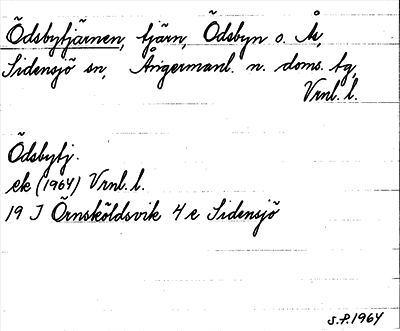 Ödsbytjärnen, tjärn, Ödsbyn o. Å,
Sidensjö sn, Ångermanl. n. doms. tg,
Vrnl. l.
Ödsbytj.
ek (1964) Vrnl. l.
19 J Örnsköldsvik 4 e Sidensjö
S.P. 1964